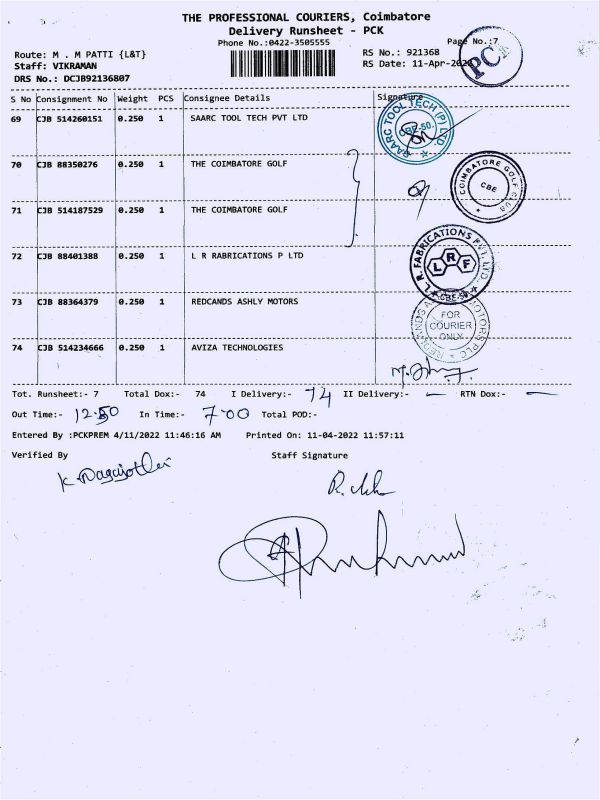 THE PROFESSIONAL COURIERS, Coimbatore
Delivery Runsheet - PCK
Phone No.:0422-3505555
Page No.:7
Route: M . M PATTI {L&T}
RS No.: 921368
Staff: VIKRAMAN
RS Date: 11-Apr-2022
DRS No.: DCJB92136807
PCK
S No Consignment No Weight PCS Consignee Details Signature
69 CJB 514260151 0.250 1 SAARC TOOL TECH PVT LTD
SAARC TOOL TECH (P) LTD
CBE-50.
70 CJB 88350276 0.250 1 THE COIMBATORE GOLF
COIMBATORE GOLF CLUB
CBE
71 CJB 514187529 0.250 1 THE COIMBATORE GOLF
72 CJB 88401388 0.250 1 L R RABRICATIONS P LTD
L.R. FABRICATIONS PVT. LTD
LRF
CBE-50.
73 CJB 88364379 0.250 1 REDCANDS ASHLY MOTORS
FOR
COURIER
ONLY
MOTORS PLC
74 CJB 514234666 0.250 1 AVIZA TECHNOLOGIES
Tot. Runsheet:- 7 Total Dox:- 74 I Delivery:- 74 II Delivery:- — RTN Dox:- —
Out Time:- 12.50 In Time:- 7.00 Total POD:-
Entered By :PCKPREM 4/11/2022 11:46:16 AM Printed On: 11-04-2022 11:57:11
Verified By Staff Signature